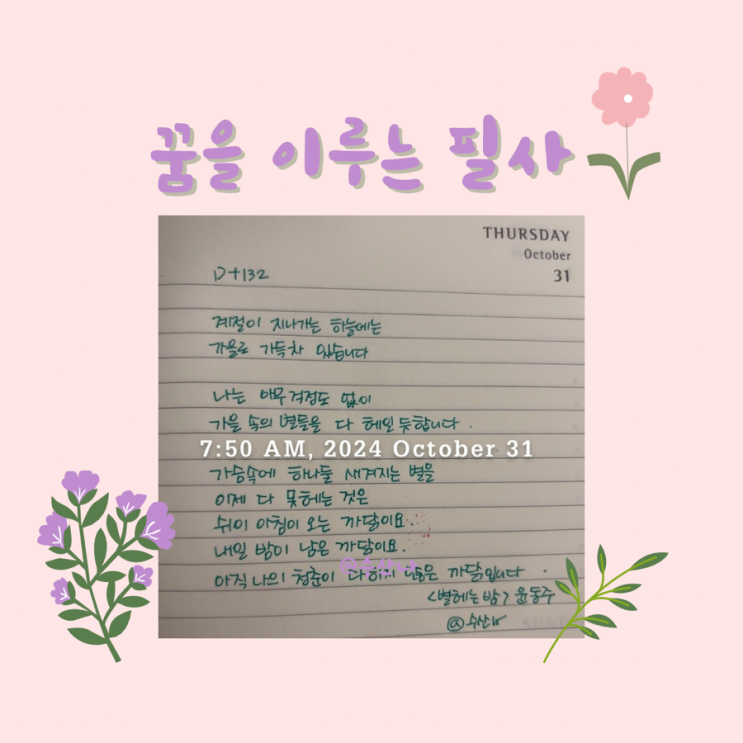 꿈을 이루는 필사
THURSDAY
October
31
D+132
계절이 지나가는 하늘에는
가을로 가득차 있습니다
나는 아무 걱정도 없이
가을 속의 별들을 다 헤일듯합니다.
7:50 AM, 2024 October 31
가슴속에 하나둘 새겨지는 별을
이제 다 못헤는 것은
쉬이 아침이 오는 까닭이요.
내일 밤이 남은 까닭이요.
아직 나의 청춘이 다하지 않은 까닭입니다.
<별헤는밤> 윤동주